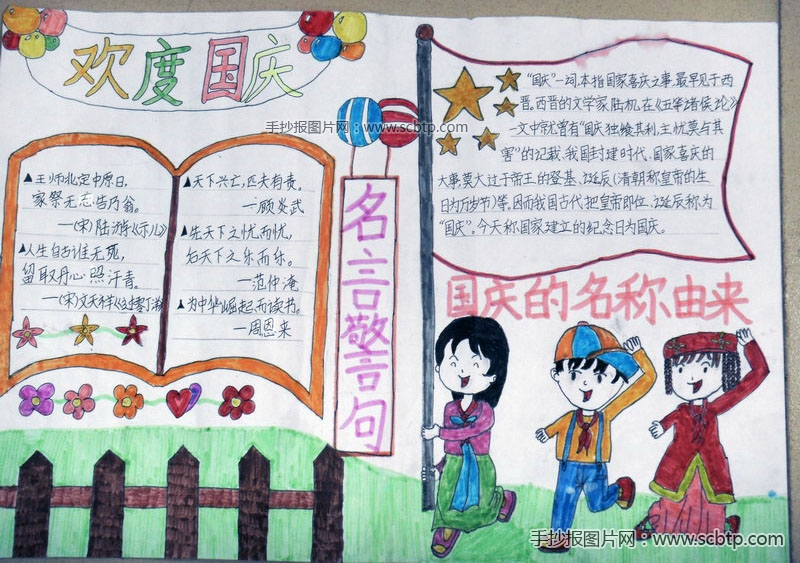 欢度国庆
手抄报图片网：www.scbtp.com
▲王师北定中原日，
家祭无忘告乃翁。
—(宋)陆游《示儿》
▲人生自古谁无死，
留取丹心照汗青。
—(宋)文天祥《过零丁洋》
▲天下兴亡，匹夫有责。
—顾炎武
▲先天下之忧而忧，
后天下之乐而乐。
—范仲淹
▲为中华崛起而读书。
—周恩来
名言警言句
“国庆”一词，本指国家喜庆之事，最早见于西
晋，西晋的文学家陆机，在《五等诸侯论》
一文中就曾有“国庆独飨其利，主忧莫与其
害”的记载，我国封建时代、国家喜庆的
大事，莫大过于帝王的登基、诞辰(清朝称皇帝的生
日为万岁节)等，因而我国古代把皇帝即位、诞辰称为
“国庆”。今天称国家建立的纪念日为国庆。
国庆的名称由来
手抄报图片网：www.scbtp.com